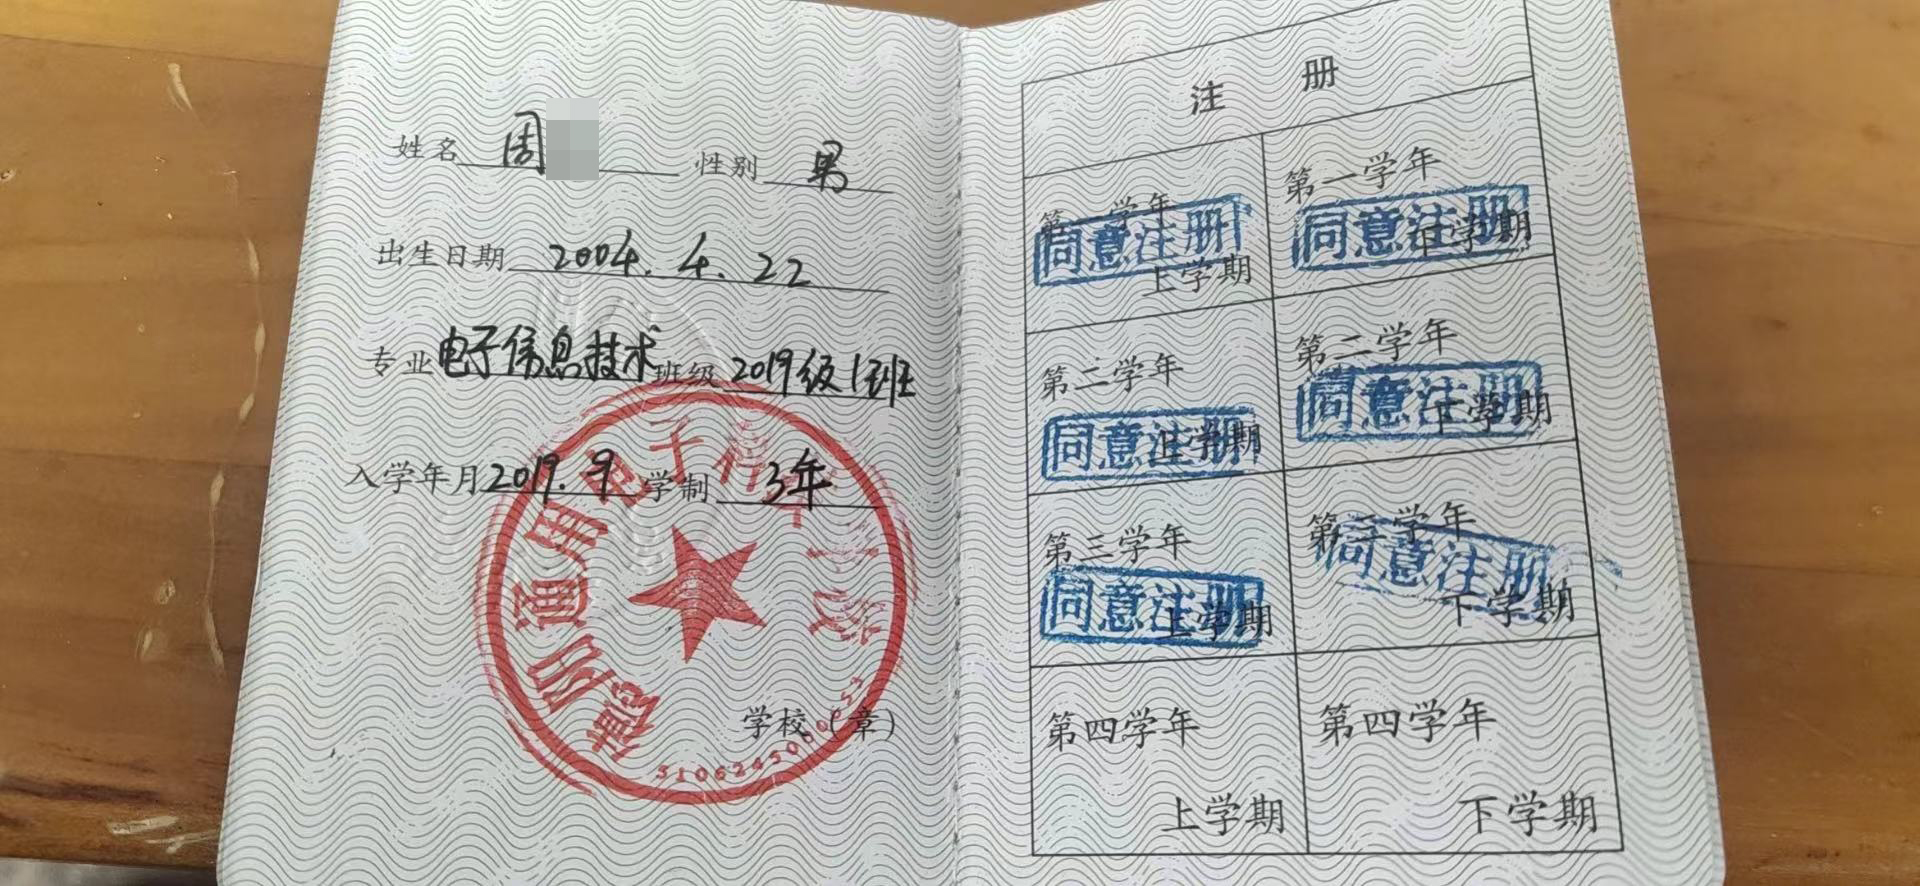 姓名 周 性别 男
出生日期 2004.4.22
专业 电子信息技术 班级 2019级1班
入学年月 2019.9 学制 3年
德阳通用电子科技学校
学校(章)
注 册
第一学年
同意注册
上学期
第一学年
同意注册
下学期
第二学年
同意注册
上学期
第二学年
同意注册
下学期
第三学年
同意注册
上学期
第三学年
同意注册
下学期
第四学年
上学期
第四学年
下学期